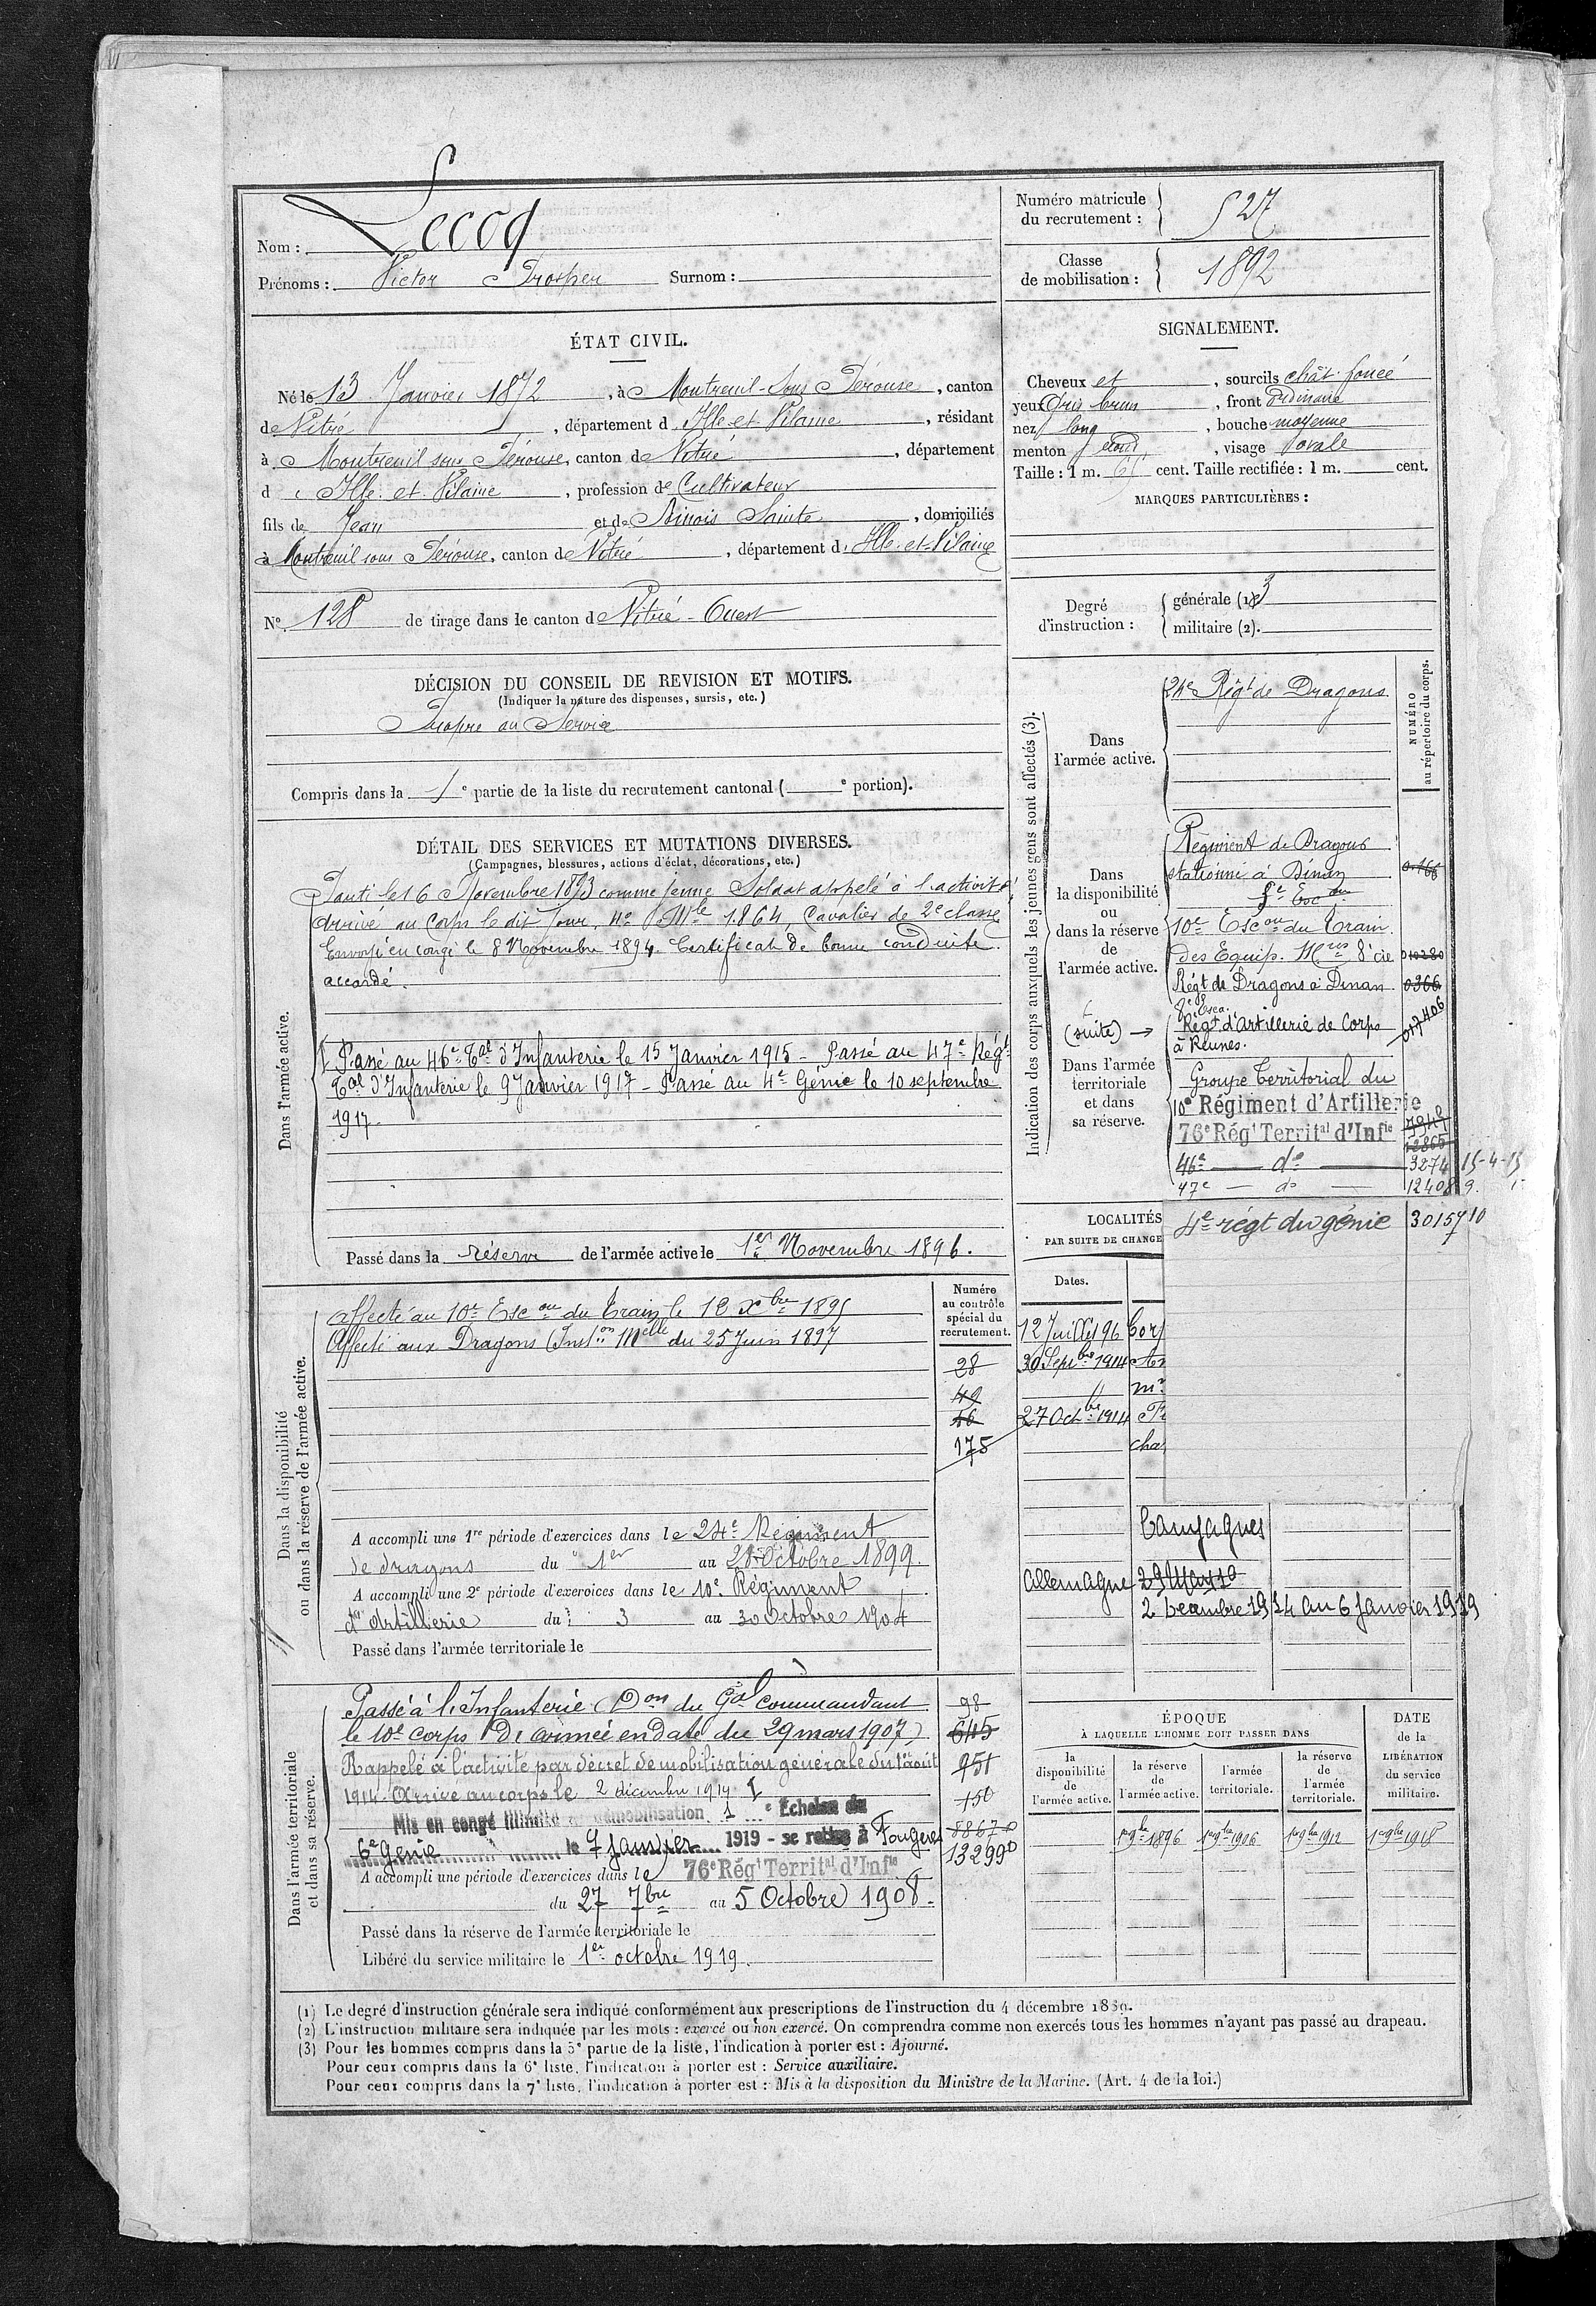 Nom : Lecoq
Prénoms : Victor Prosper Surnom :
Numéro matricule du recrutement : 527
Classe de mobilisation : 1892
ÉTAT CIVIL.
Né le 13 Janvier 1872, à Montreuil-sous-Pérouse, canton
de Vitré, département d Ille-et-Vilaine, résidant
à Montreuil sous Pérouse, canton de Vitré, département
d Ille-et-Vilaine, profession de Cultivateur
fils de Jean et de Sainte, domiciliés
à Montreuil sous Pérouse, canton de Vitré, département d Ille-et-Vilaine
N° 128 de tirage dans le canton de Vitré-Ouest
SIGNALEMENT.
Cheveux et, sourcils chât. foncé
yeux Gris brun, front Ordinaire
nez long, bouche moyenne
menton rond, visage ovale
Taille : 1 m. cent. Taille rectifiée : 1 m. cent.
MARQUES PARTICULIÈRES :
Degré d'instruction : générale (1) 3
militaire (2).
DÉCISION DU CONSEIL DE REVISION ET MOTIFS.
(Indiquer la nature des dispenses, sursis, etc.)
Propre au Service
Compris dans la 1e partie de la liste du recrutement cantonal ( e portion).
DÉTAIL DES SERVICES ET MUTATIONS DIVERSES.
(Campagnes, blessures, actions d'éclat, décorations, etc.)
Dans l'armée active.
Parti le 16 Novembre 1893 comme jeune Soldat appelé à l'activité
Arrivé au Corps le dit Jour, No Mle 1864, Cavalier de 2e classe
Envoyé en congé le 8 Novembre 1894. Certificat de bonne conduite
accordé.
Passé au 46e Tal d'Infanterie le 15 Janvier 1915 - Passé au 47e Régt
Tal d'Infanterie le 9 Janvier 1917 - Passé au 4e Génie le 10 septembre
1917.
Passé dans la réserve de l'armée active le 1er Novembre 1896.
Indication des corps auxquels les jeunes gens sont affectés (3).
NUMÉRO au répertoire du corps.
Dans l'armée active.
24e Régt de Dragons
Dans la disponibilité ou dans la réserve de l'armée active.
Régiment de Dragons
stationné à Dinan
10e Escon du Train
des Equip. Mres 8e cie 010280
Régt de Dragons à Dinan 0366
(suite) → Régt d'Artillerie de Corps 017406
à Rennes.
Dans l'armée territoriale et dans sa réserve.
Groupe Territorial du
10e Régiment d'Artillerie
76e Régt Territal d'Infie 12865
46e — do — 3274 15-4-15
47e — do — 12408 9.
4e régt du génie 30157 10
LOCALITÉS
PAR SUITE DE CHANGE
Dates.
12 Juillet 96 Corp
30 Septbre 1914
27 Octbre 1914
cha
Campagnes
Allemagne
2 Decembre 1914 au 6 Janvier 1919
Dans la disponibilité ou dans la réserve de l'armée active.
Numéro au contrôle spécial du recrutement.
Affecté au 10e Escon du Train le 12 Xbre 1895
Affecté aux Dragons (Inston Melle du 25 Juin 1897
28
49
56
175
A accompli une 1re période d'exercices dans le 24e Régiment
de dragons du 1er au 28 Octobre 1899.
A accompli une 2e période d'exercices dans le 10e Régiment
d'Artillerie du 3 au 30 Octobre 1904
Passé dans l'armée territoriale le
Dans l'armée territoriale et dans sa réserve.
Passé à l'Infanterie (Don du Gal commandant 98
le 10e corps d'armée en date du 29 mars 1907) 645
Rappelé à l'activité par décret de mobilisation générale du 1er août 951
1914. Arrivé au corps le 2 décembre 1914 150
Mis en congé illimité de démobilisation 1e Echelon du 88670
6e Génie le 7 janvier 1919 - se retire à Fougères 13299
A accompli une période d'exercices dans le 76e Régt Territal d'Infie
du 27 7bre au 5 Octobre 1908.
Passé dans la réserve de l'armée territoriale le
Libéré du service militaire le 1er octobre 1919.
ÉPOQUE À LAQUELLE L'HOMME DOIT PASSER DANS
la disponibilité de l'armée active.
la réserve de l'armée active.
l'armée territoriale.
la réserve de l'armée territoriale.
DATE de la LIBÉRATION du service militaire.
1er 9bre 1896 1er 9bre 1906 1er 9bre 1912 1er 9bre 1918
(1) Le degré d'instruction générale sera indiqué conformément aux prescriptions de l'instruction du 4 décembre 1889.
(2) L'instruction militaire sera indiquée par les mots : exercé ou non exercé. On comprendra comme non exercés tous les hommes n'ayant pas passé au drapeau.
(3) Pour les hommes compris dans la 5e partie de la liste, l'indication à porter est : Ajourné.
Pour ceux compris dans la 6e liste, l'indication à porter est : Service auxiliaire.
Pour ceux compris dans la 7e liste, l'indication à porter est : Mis à la disposition du Ministre de la Marine. (Art. 4 de la loi.)